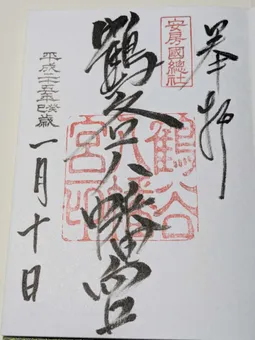 奉拝
安房國總社
鶴谷八幡宮
鶴谷
八幡
宮印
平成二十五年癸巳歳
一月十日